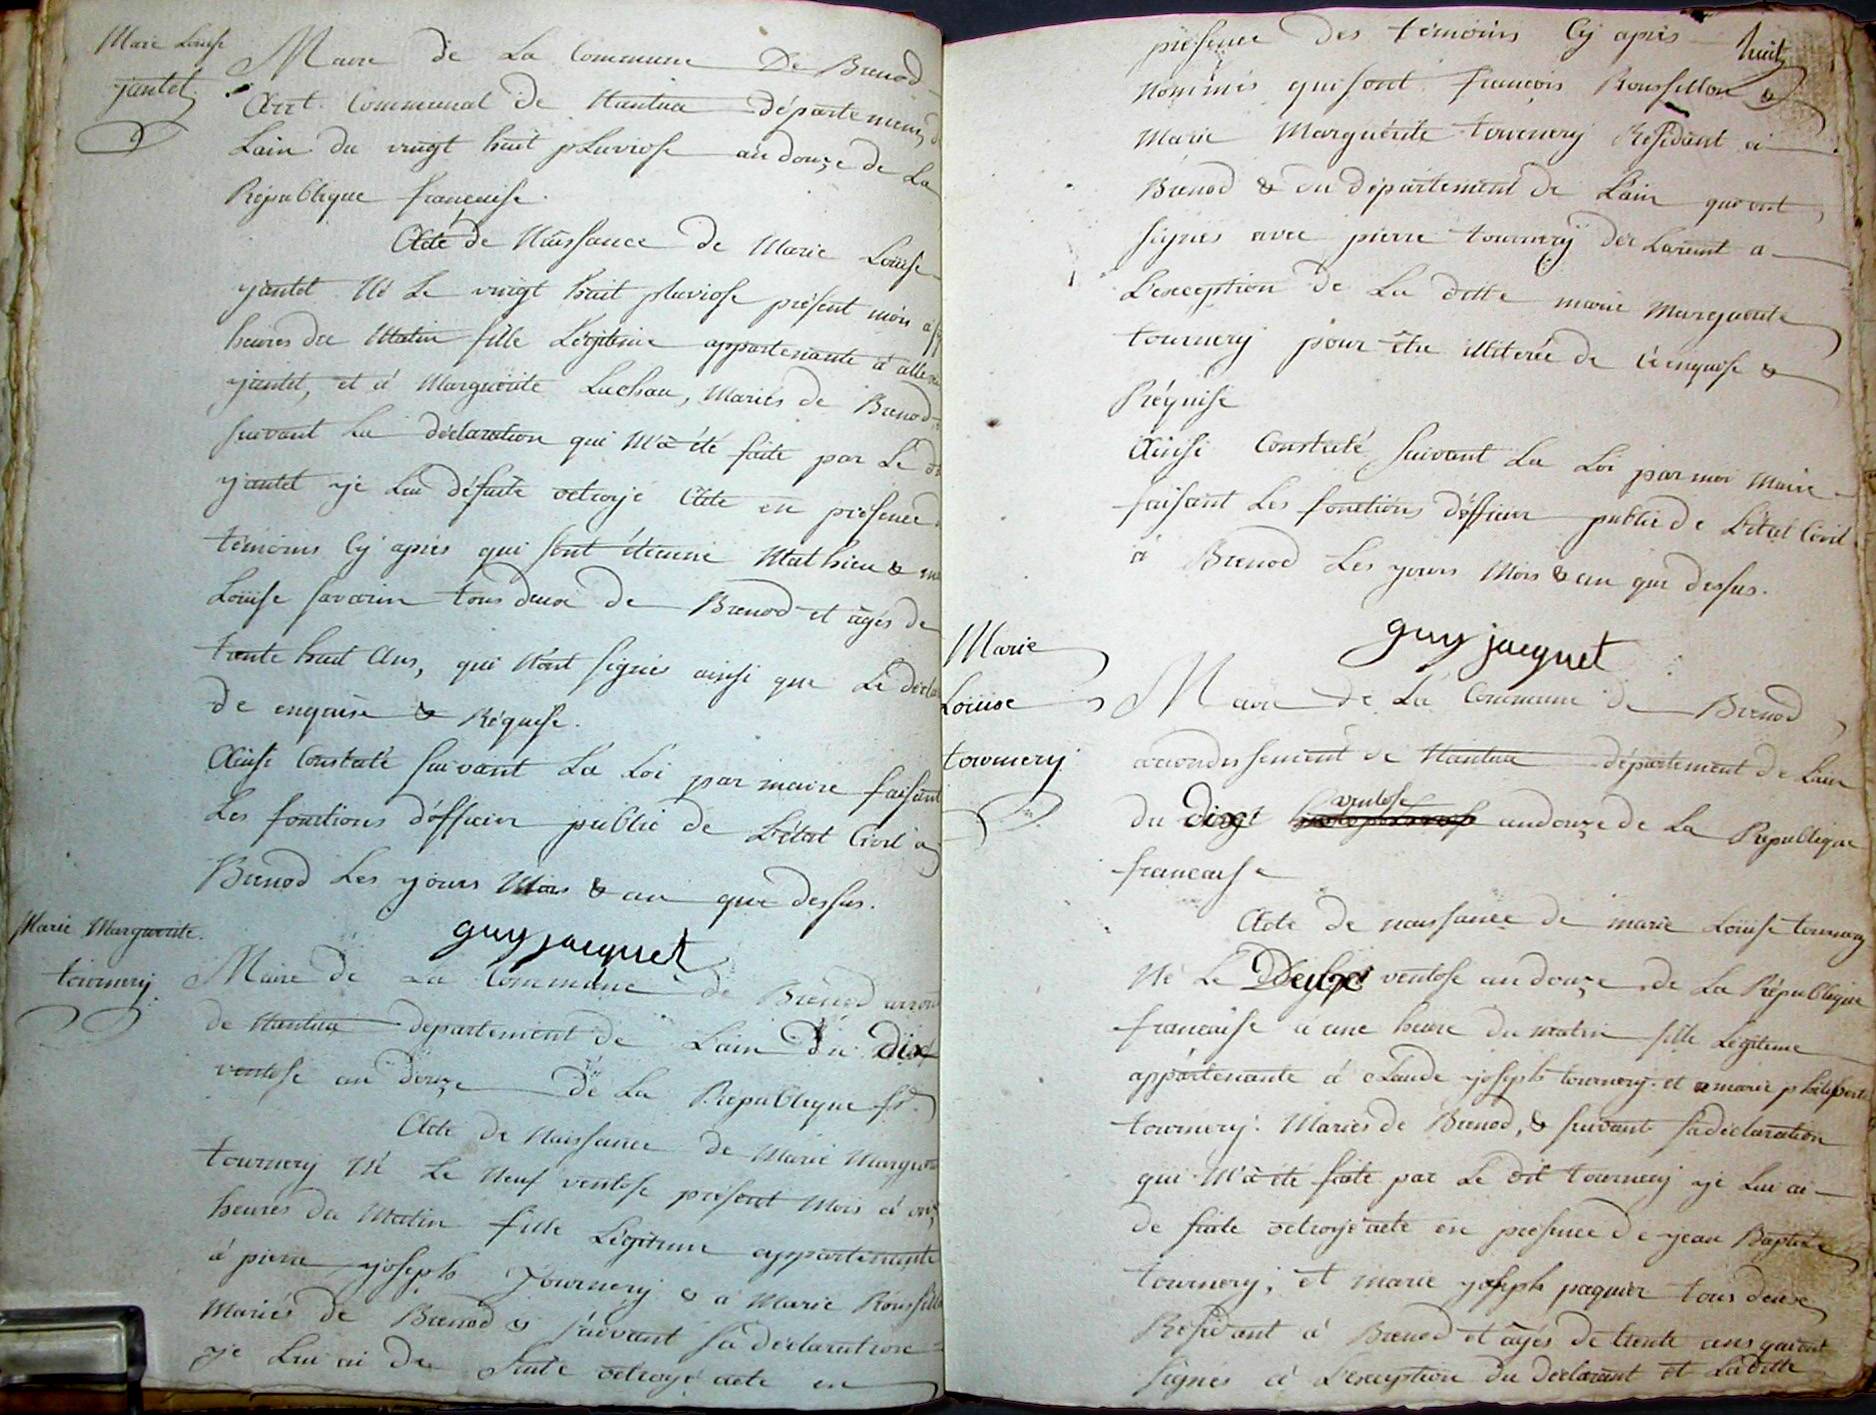 Marie Louise
jantet
Maire de La Commune De Brenod
Arrt. Communal de Nantua département d
Lain du vingt huit pluviose an douze de La
République française.
Acte de Naissance de Marie Louise
jantet Né Le vingt huit pluviose présent mois à
heures du Matin fille Légitime appartenante à
jantet, et à Marguerite Luchau, Mariés de Brenod
suivant La déclaration qui M'a été faite par Le
jantet je Lui de suite octroyé Acte en présence
témoins Cy après qui sont étienne Mathieu &
Louise savarin tous deux de Brenod et agés de
trante huit Ans, qui N'ont signés ainsi que Le décla
De enquise & Réquise.
Ainsi Constaté suivant La Loi par maire faisant
Les fonctions d'officier public de L'état Civil à
Brenod Les yours Mois & an que dessus.
guy jacquet
Marie Marguerite
tournery
Maire de La Commune de Brenod arron
de Nantua departement de L'ain Du dix
ventose an douze de La République fse.
Acte de Naissance de Marie Margue
tournery Né Le Neuf ventose présent Mois à
heures du Matin fille Légitime appartenante
à pierre yoseph Journery & à Marie Roussill
Mariés de Brenod & suivant sa declaration
je Lui ai De Suite octroyé acte en
huit
présence des témoins Cy après
Nommés qui sont françois Roussillon &
Marie Marguerite tournery Résidant à
Brenod & du Département de L'ain qui ont
signés avec pierre tournery déclarant a
L'exception de La ditte marie Marguerite
tournery pour être illiterée de l'enquise &
Réquise
Ainsi Constaté suivant La Loi par moi Maire
faisant Les fonctions d'officier public de L'état Civil
à Brenod Les yours Mois & an que dessus.
guy jacquet
Marie
Louise
tournery
Maire de La Commune de Brenod
arrondissement de Nantua département de Lain
du dix ventose an douze de La République
francaise
Acte de naissance de marie Louise tournery
Né Le ventose an douze de La République
française à une heure du matin fille Légitime
appartenante à Claude yoseph tournery et a marie philiberte
tournery. Mariés de Brenod, & suivant sa déclaration
qui M'a été faite par Le dit tournery je Lui ai
de suite octroyé acte en présence de jean Baptiste
tournery; et marie yoseph paquier tous deux
Residant à Brenod et agés de trente ans qui ont
signés à L'exception du declarant et Laditte